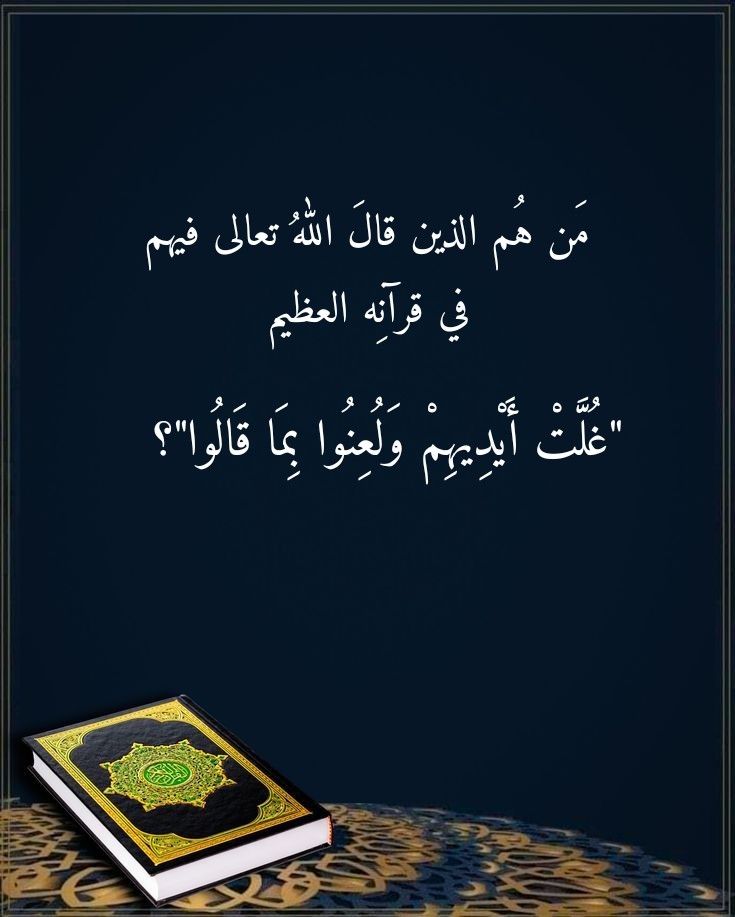 مَن هُم الذين قالَ اللهُ تعالى فيهم
في قرآنِه العظيم
"غُلَّتْ أَيْدِيهِمْ وَلُعِنُوا بِمَا قَالُوا"؟